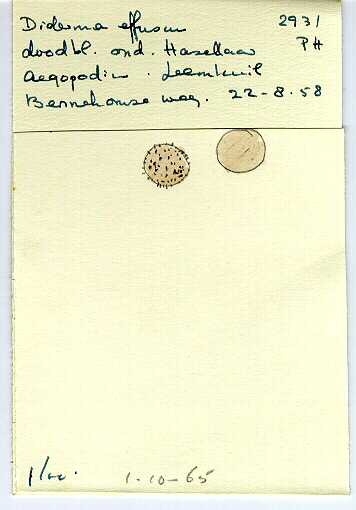 Diderma effusum 2931
doodbl. ond. Hazelaar PH
Aegopodium. Leemkuil
Bennekomse weg. 22-8-58
1-10-65